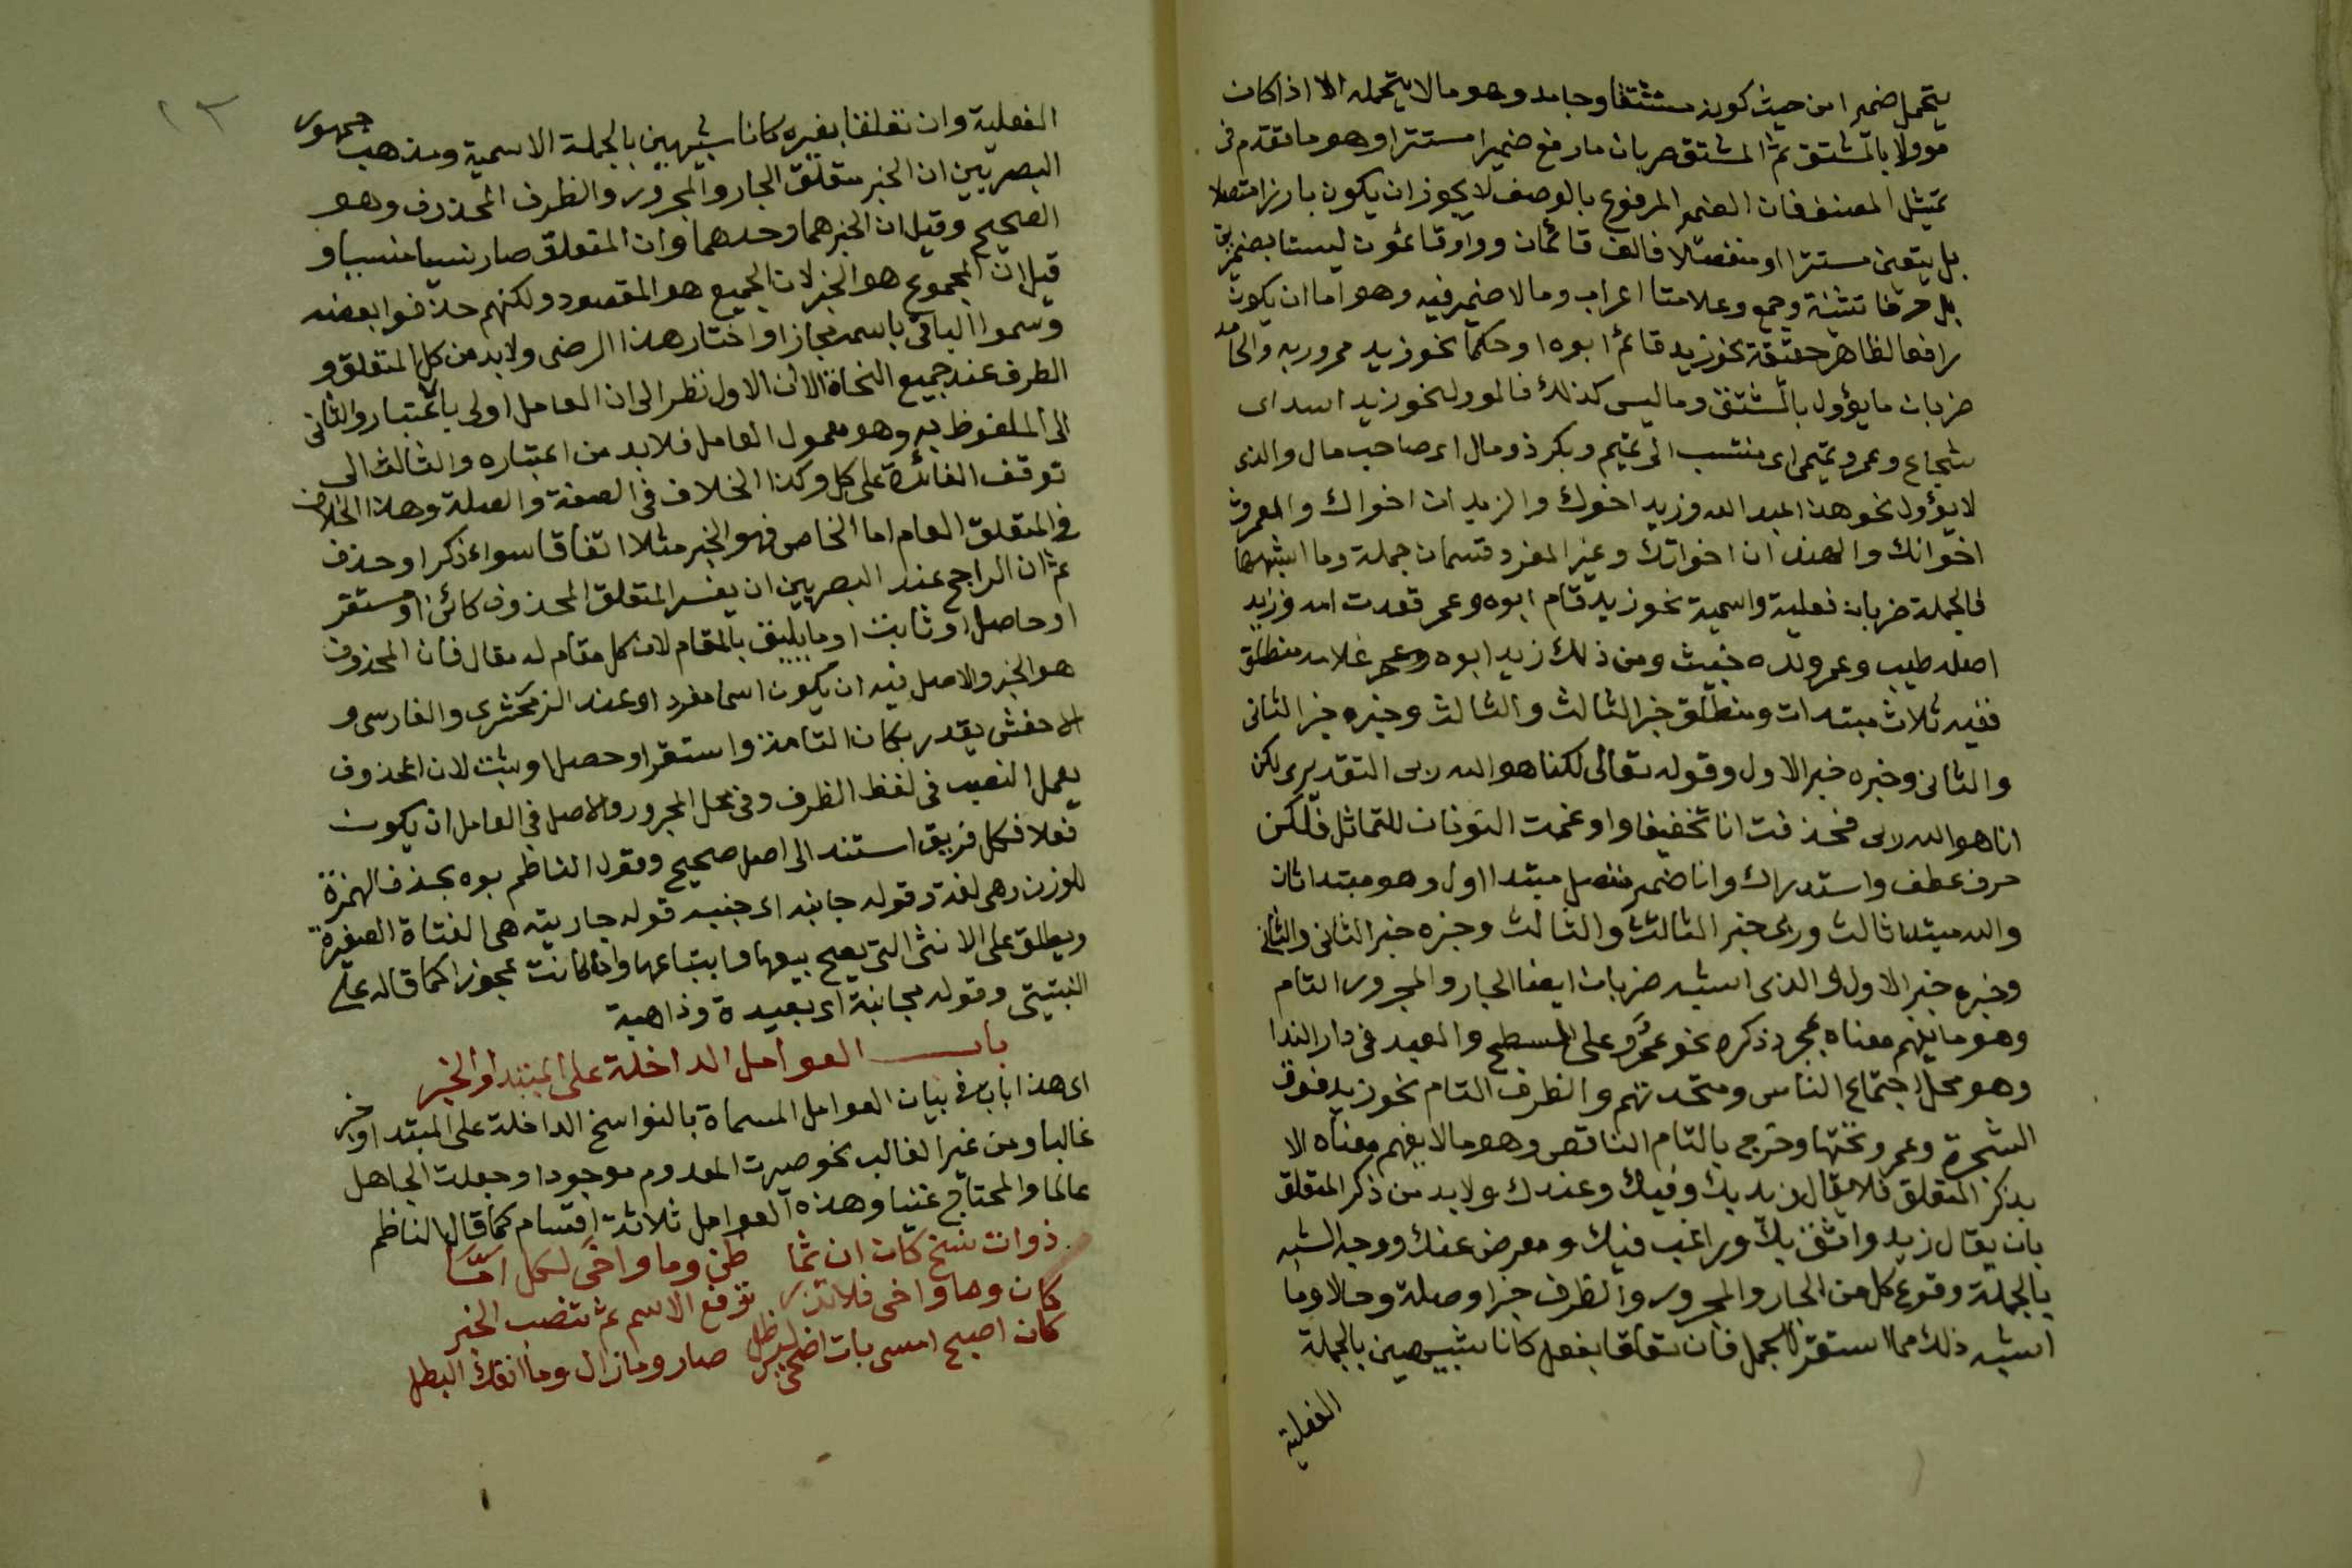 يتحمل ضميرا من حيث كونه مشتقا وجامد وهو مالا يتحمله الا اذا كان
موولا بالمشتق ثم المشتق ضربان ما رفع ضميرا مستترا وهو ما تقدم فى
تمثيل المصنف فان الضمير المرفوع بالوصف لا يجوز ان يكون بارزا متصلا
بل يتعين مستترا او منفصلا فالف قائمان وواو قائمون ليستا بضميرين
بل حرفا تثنية وجمع وعلامتا اعراب ومالا ضمير فيه وهو اما ان يكون
رافعا لظاهر حقيقة نحو زيد قائم ابوه او حكما نحو زيد ممرور به والجامد
ضربان ما يؤول بالمشتق وما ليس كذلك فالمورل نحو زيد اسد اى
شجاع وعمرو تميمى اى منتسب الى تميم وبكر ذو مال اى صاحب مال والذى
لا يؤول نحو هذا عبد الله وزيد اخوك والزيدان اخواك والعمرون
اخوانك والهندان اخواتك وغير المفرد قسمان جملة وما اشبهها
فالجملة ضربان فعلية واسمية نحو زيد قام ابوه وعمر قعدت امه وزيد
اصله طيب وعمرو ولده خبيث ومن ذلك زيد ابوه وعمر غلامه منطلق
ففيه ثلاث مبتدات ومنطلق خبر الثالث والثالث وخبره خبر الثانى
والثانى وخبره خبر الاول وقوله تعالى لكنا هو الله ربى التقدير لكن
انا هو الله ربى فحذفت انا تخفيفا وادغمت النونان للتماثل فلكن
حرف عطف واستدراك وانا ضمير منفصل مبتدا اول وهو مبتدا ثان
والله مبتدا ثالث وربى خبر الثالث والثالث وخبره خبر الثانى والثانى
وخبره خبر الاول والذى اشبه ضربان ايضا الجار والمجرور التام
وهو ما يفهم معناه بمجرد ذكره نحو عمرو على السطح والعبد فى دار الندا
وهو محل اجتماع الناس ومتحدثهم والظرف التام نحو زيد فوق
الشجرة وعمرو تحتها وخرج بالتام الناقص وهو مالا يفهم معناه الا
بذكر المتعلق فلا يقال زيد بك وفيك وعندك ولا بد من ذكر المتعلق
بان يقال زيد واثق بك وراغب فيك ومعرض عنك ووجه الشبه
بالجملة وقوع كل من الجار والمجرور والظرف خبرا وصلة وحالا وما
اشبه ذلك مما استقر للجمل فان تعلقا بفعل كانا شبيهين بالجملة
الفعلية
١٣
الفعلية وان تعلقا بغيره كانا شبيهين بالجملة الاسمية ومذهب جمهور
البصريين ان الخبر متعلق الجار والمجرور والظرف المحذوف وهو
الصحيح وقيل ان الخبر هما وحدهما وان المتعلق صار نسيا منسيا و
قيل ان المجموع هو الخبر لان الجميع هو المقصود ولكنهم حذفوا بعضه
وسموا الباقى باسمه مجازا واختار هذا الرضى ولا بد من كل المتعلق و
الظرف عند جميع النحاة الا ان الاول نظر الى ان العامل اولى بالاعتبار والثانى
الى الملفوظ به وهو معمول العامل فلا بد من اعتباره والثالث الى
توقف الفائدة على كل وكذا الخلاف فى الصفة والصلة وهذا الخلاف
فى المتعلق العام اما الخاص فهو الخبر مثلا اتفاقا سواء ذكر او حذف
ثم ان الراجح عند البصريين ان يفسر المتعلق المحذوف كائن او مستقر
او حاصل او ثابت او ما يليق بالمقام لان كل مقام له مقال فان المحذوف
هو الخبر والاصل فيه ان يكون اسما مفردا وعند الزمخشرى والفارسى و
الاخفش يقدر بكان التامة واستقر او حصل او يثبت لان المحذوف
يعمل النصب فى لفظ الظرف وفى محل المجرور والاصل فى العامل ان يكون
فعلا فكل فريق استند الى اصل صحيح وقول الناظم بوه بحذف الهمزة
للوزن وهى لغة وقوله جانبه اى جنبه قوله جاريته هى الفتاة الصغيرة
ويطلق على الانثى التى يصح بيعها وابتياعها وان كانت عجوزا كما قاله على
النبتيتى وقوله مجانبة اى بعيدة وذاهبة
باب العوامل الداخلة على المبتدا والخبر
اى هذا باب فى بيان العوامل المسماة بالنواسخ الداخلة على المبتدا وخبر
غالبا ومن غير الغالب نحو صيرت المعدوم موجودا وجعلت الجاهل
عالما والمحتاج غنيا وهذه العوامل ثلاثة اقسام كما قال الناظم
ذوات نسخ كان ان ثما ظن وما واخى لكل اما
كان وما واخى فلا تذر ترفع الاسم ثم تنصب الخبر
كان اصبح امسى بات اضحى ليس ظل صار وما زال وما انفك البطل